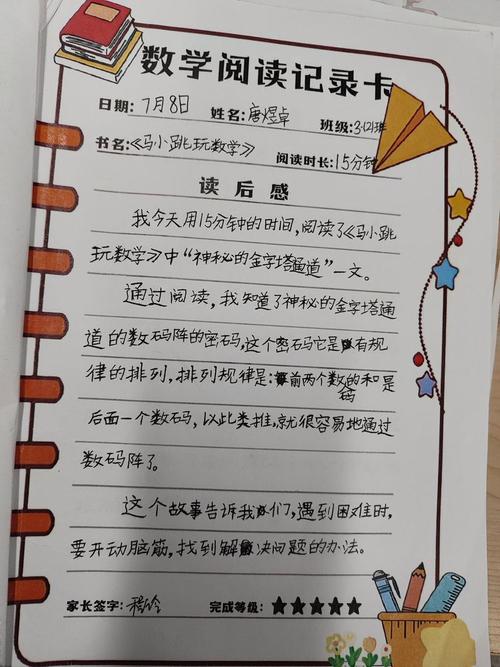 数学阅读记录卡
日期: 7月8日 姓名: 唐煜卓 班级: 3(2)班
书名:《马小跳玩数学》 阅读时长: 15分钟
读后感
我今天用15分钟的时间,阅读了《马小跳
玩数学》中“神秘的金字塔通道”一文。
通过阅读,我知道了神秘的金字塔通
道的数码阵的密码,这个密码它是有规
律的排列,排列规律是:前两个数码的和是
后面一个数码,以此类推,就很容易地通过
数码阵了。
这个故事告诉我们,遇到困难时,
要开动脑筋,找到解决问题的办法。
家长签字: 程 完成等级: ★★★★★